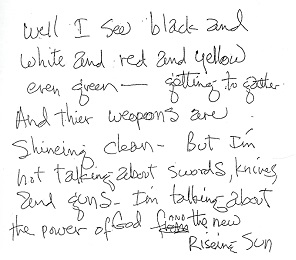 Well I see black and
white and red and yellow
even green — getting to gather.
And thier weapons are
Shineing clean - But I'm
not talking about swords, knives
and guns - I'm talking about
the power of God and the new
Riseing Sun